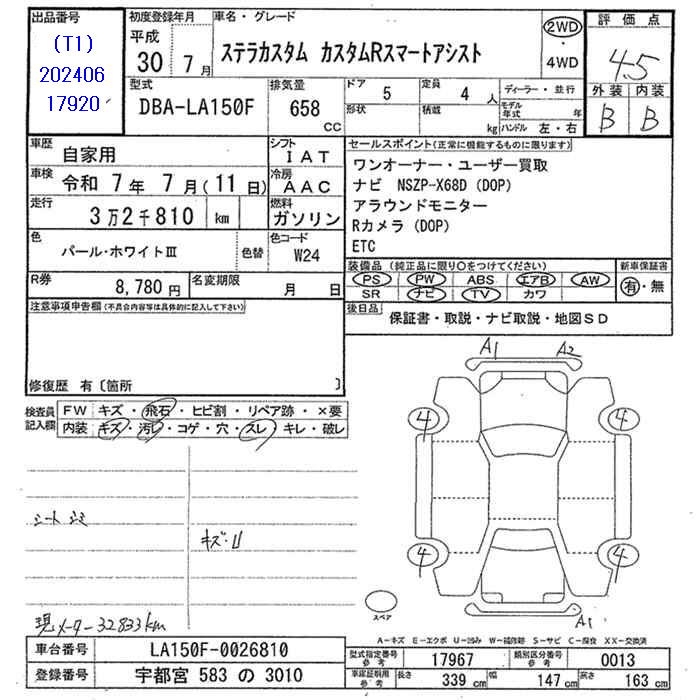 出品番号
(T1)
202406
17920
初度登録年月
平成
30 年 7 月
車名・グレード
ステラカスタム カスタムRスマートアシスト
2WD
・
4WD
評価点
4.5
外装 内装
B B
型式
DBA-LA150F
排気量
658
CC
ドア
5
定員
4 人
形状
積載
kg
ディーラー・並行
モデル年式 年
ハンドル 左・右
車歴
自家用
シフト
IAT
車検
令和 7年 7月(11日)
冷房
AAC
走行
3万2千810 km
燃料
ガソリン
色
パール・ホワイトⅢ
色替
色コード
W24
R券
8,780円
名変期限
月 日
セールスポイント(正常に機能するものに限ります)
ワンオーナー・ユーザー買取
ナビ NSZP-X68D(DOP)
アラウンドモニター
Rカメラ(DOP)
ETC
装備品(純正品に限り○をつけてください)
PS PW ABS エアB AW
SR ナビ TV カワ
新車保証書
有・無
後日品
保証書・取説・ナビ取説・地図SD
注意事項申告欄(不具合内容等は具体的に記入して下さい)
修復歴 有〔箇所 〕
検査員記入欄
FW キズ・飛石・ヒビ割・リペア跡・×要
内装 キズ・汚レ・コゲ・穴・スレ・キレ・破レ
シートシミ
キズ・U
現メーター32833km
A1 A2
4 4
4 4
A1
スペア
A-キズ E-エクボ U-凹み W-補修跡 S-サビ C-腐食 XX-交換済
車台番号
LA150F-0026810
登録番号
宇都宮 583 の 3010
型式指定番号
参考
17967
類別区分番号
参考
0013
車庫証明用
参考
長さ 339 cm 幅 147 cm 高さ 163 cm